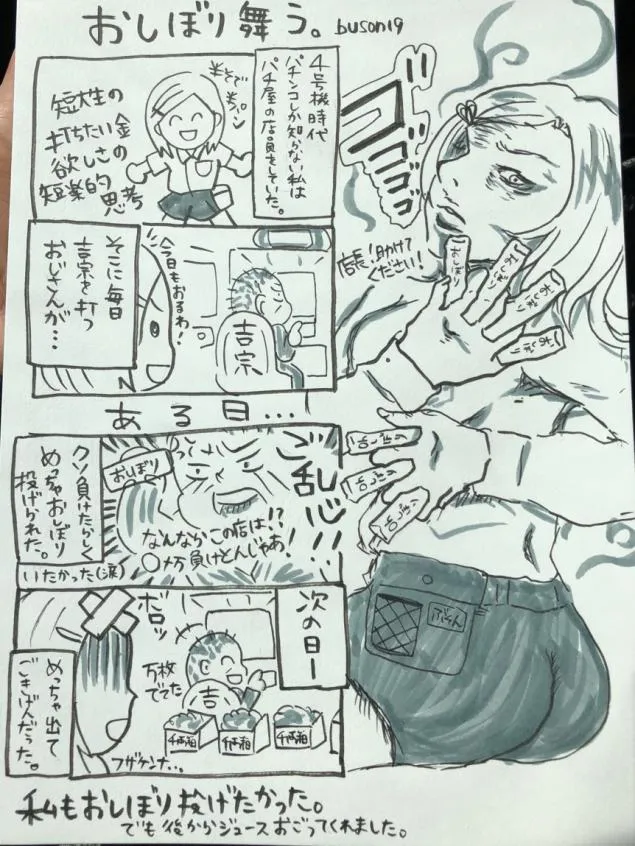 おしぼり舞う。 buson19
4号機時代
パチンコしか知らない私は
パチ屋の店員をしていた。
短大生の
打ちたい金
欲しさの
短楽的
思考
そこに毎日
吉宗を打つ
おじさんが…
今日もおるわ!
吉宗
ある日…
クソ負けたらしく
めっちゃおしぼり
投げられた。
いたかった(涙)
おしぼり
ご乱心!!
なんならこの店は!?
〇万負けとんじゃあ!
次の日ー
ボロッ
万枚
でてた
吉
千両箱
千両箱
千両箱
フザケンナ…
めっちゃ出て
ごきげんだった。
ゴゴゴゴ
店長!助けて
ください!
おしぼり
おしぼり
おしぼり
おしぼり
ぶそん
私もおしぼり投げたかった。
でも後からジュースおごってくれました。